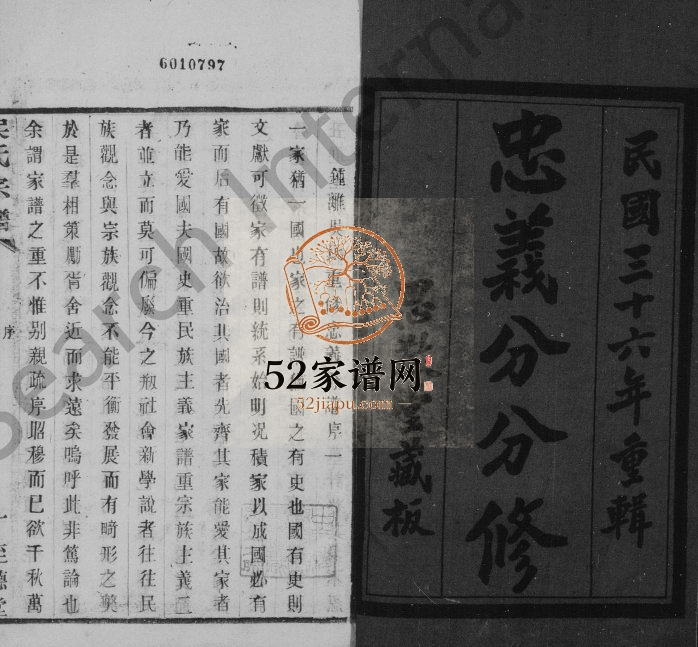 民國三十六年重輯
忠義分分修
藏板
6010797
一家猶一國也家之有譜國之有史也國有史則
文獻可徵家有譜則統系始明况積家以成國必有
家而后有國故欲治其國者先齊其家能愛其家者
乃能愛國夫國史重民族主義家譜重宗族主義二
者並立而莫可偏廢今之刱社會新學說者往往民
族觀念與宗族觀念不能平衡發展而有畸形之獘
於是羣相策勵背舍近而求遠矣嗚呼此非篤論也
余謂家譜之重不惟别親疏序昭穆而已欲千秋萬
吳氏宗譜
序
一
至德堂
52家谱网
52jiapu.com
Search Interna